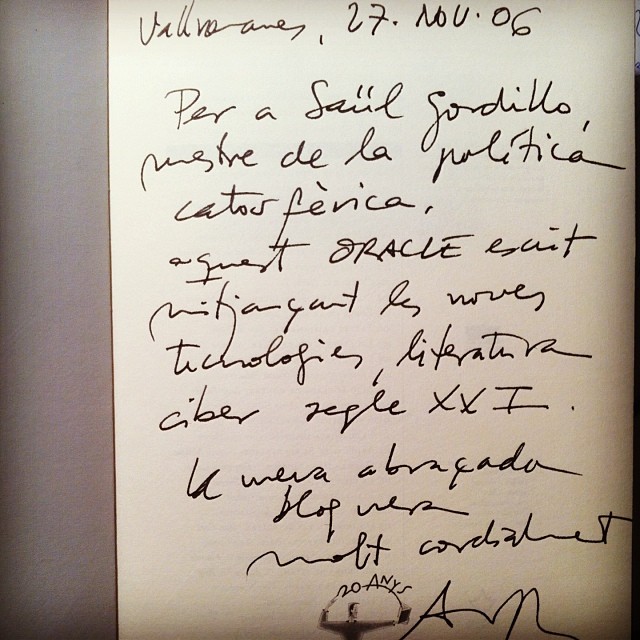 Vallromanes, 27. NOV. 06
Per a Saül Gordillo,
mestre de la política
catosfèrica,
aquest ORACLE escrit
mitjançant les noves
tecnologies, literatura
ciber segle XXI.
la meva abraçada
bloguera
molt cordialment
20 ANYS